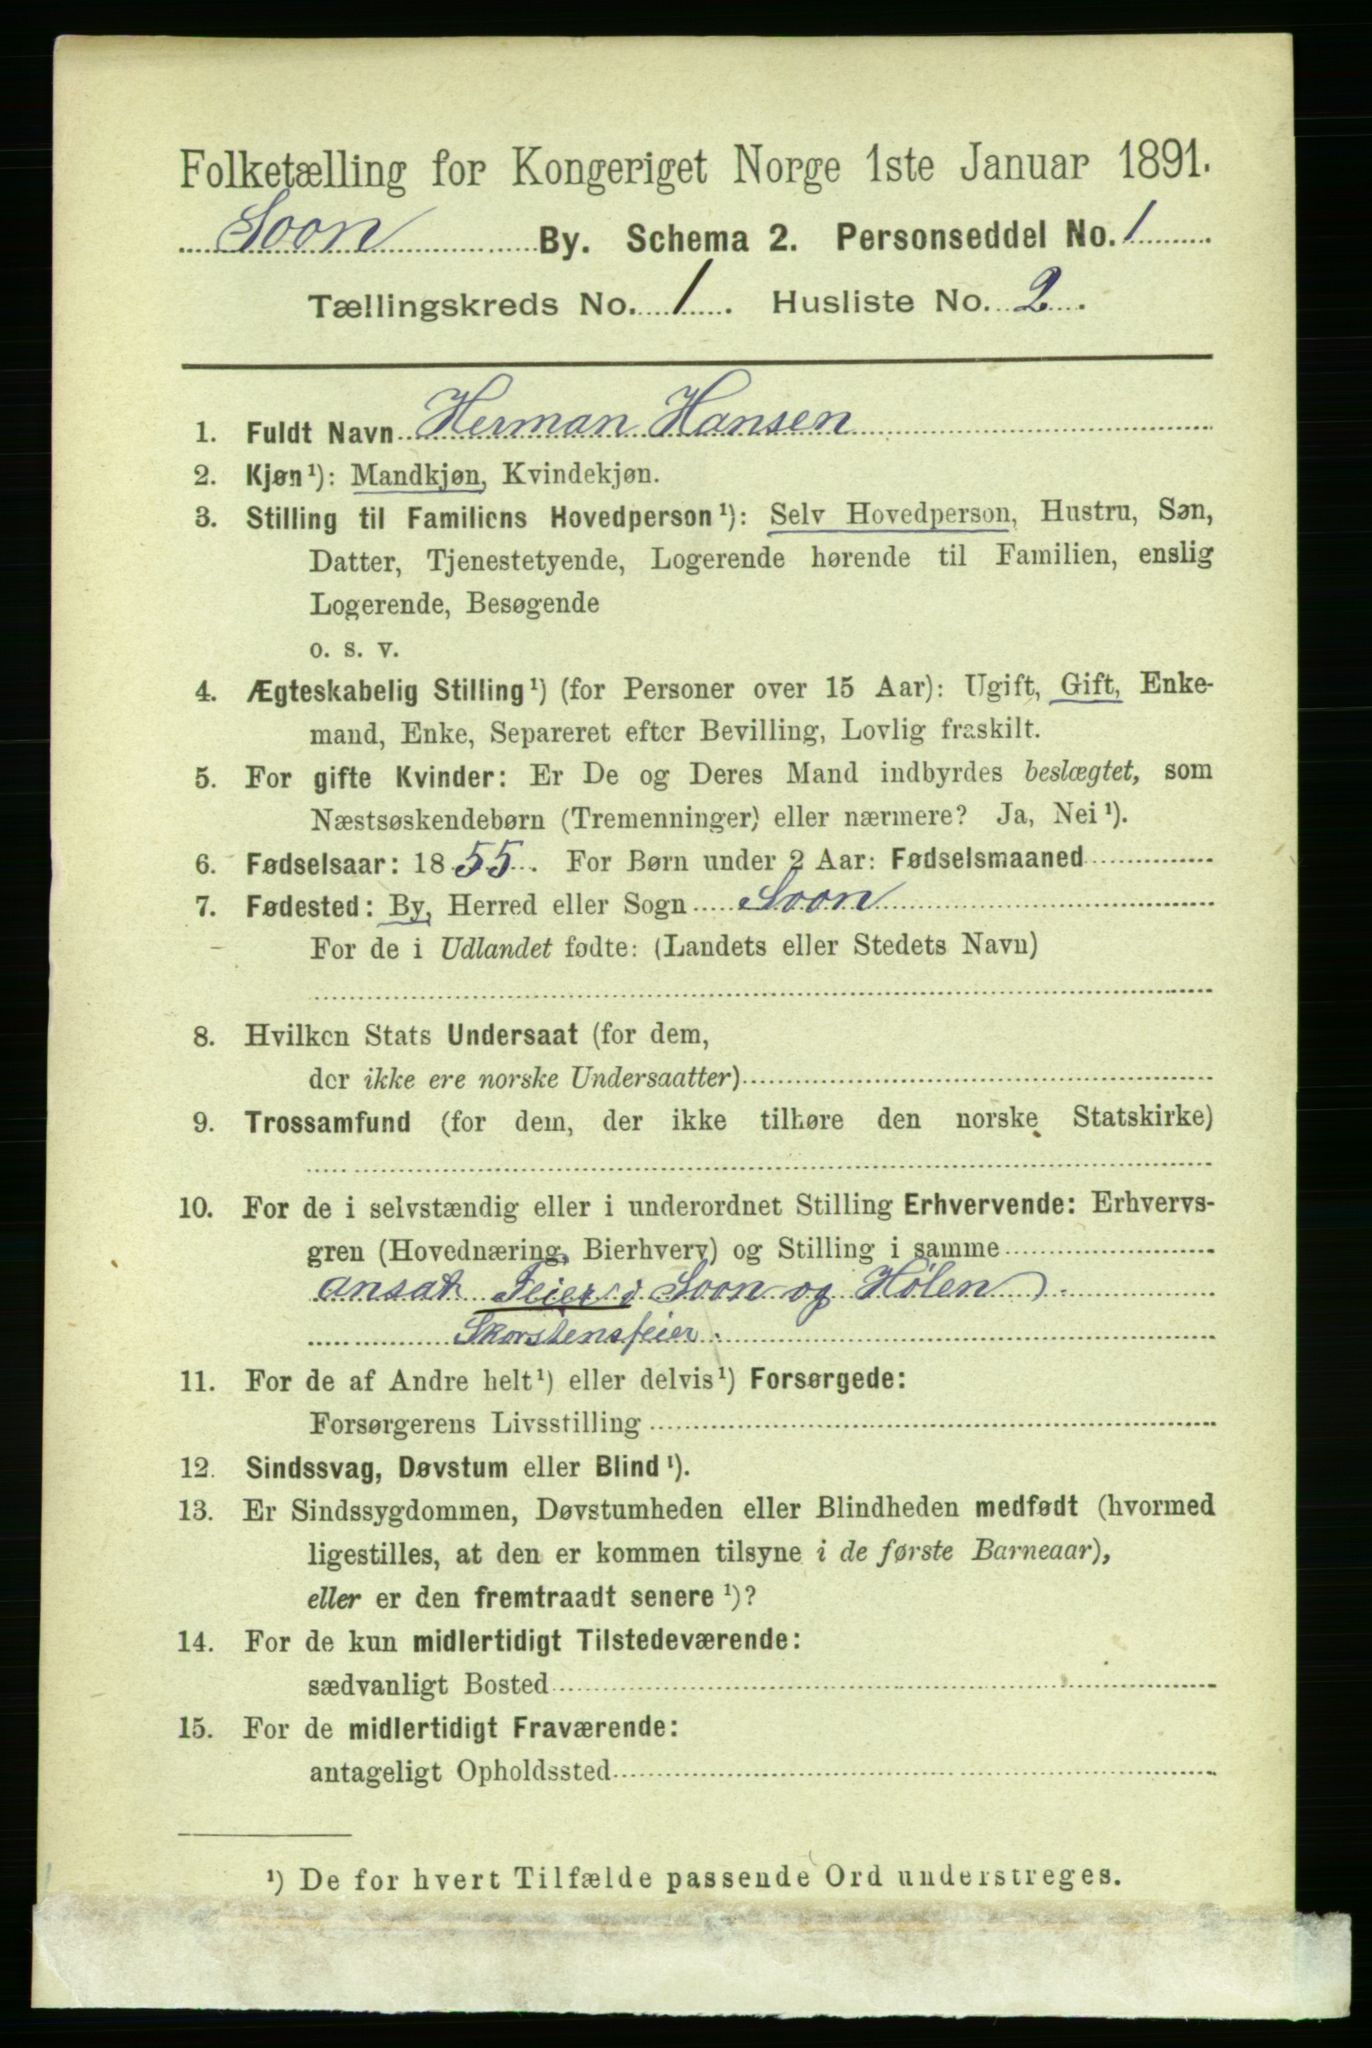 Folketælling for Kongeriget Norge 1ste Januar 1891.
Soon By. Schema 2. Personseddel No. 1
Tællingskreds No. 1. Husliste No. 2.
1. Fuldt Navn Herman Hansen
2. Kjøn¹): Mandkjøn, Kvindekjøn.
3. Stilling til Familiens Hovedperson¹): Selv Hovedperson, Hustru, Søn,
Datter, Tjenestetyende, Logerende hørende til Familien, enslig
Logerende, Besøgende
o. s. v.
4. Ægteskabelig Stilling¹) (for Personer over 15 Aar): Ugift, Gift, Enke-
mand, Enke, Separeret efter Bevilling, Lovlig fraskilt.
5. For gifte Kvinder: Er De og Deres Mand indbyrdes beslægtet, som
Næstsøskendebørn (Tremenninger) eller nærmere? Ja, Nei¹).
6. Fødselsaar: 1855. For Børn under 2 Aar: Fødselsmaaned
7. Fødested: By, Herred eller Sogn Soon
For de i Udlandet fødte: (Landets eller Stedets Navn)
8. Hvilken Stats Undersaat (for dem,
der ikke ere norske Undersaatter)
9. Trossamfund (for dem, der ikke tilhøre den norske Statskirke)
10. For de i selvstændig eller i underordnet Stilling Erhvervende: Erhvervs-
gren (Hovednæring, Bierhverv) og Stilling i samme
ansat Feier i Soon og Hølen
Skorstensfeier.
11. For de af Andre helt¹) eller delvis¹) Forsørgede:
Forsørgerens Livsstilling
12. Sindssvag, Døvstum eller Blind¹).
13. Er Sindssygdommen, Døvstumheden eller Blindheden medfødt (hvormed
ligestilles, at den er kommen tilsyne i de første Barneaar),
eller er den fremtraadt senere¹)?
14. For de kun midlertidigt Tilstedeværende:
sædvanligt Bosted
15. For de midlertidigt Fraværende:
antageligt Opholdssted
¹) De for hvert Tilfælde passende Ord understreges.